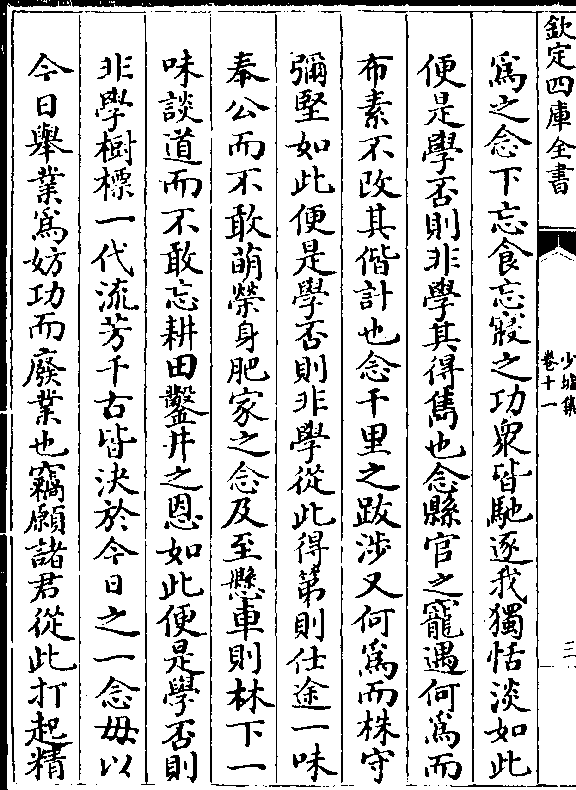 欽定四庫全書
少墟集
卷十一
三
爲之念下忘食忘寢之功衆皆馳逐我獨恬淡如此
便是學否則非學其得雋也念縣官之寵遇何爲而
布素不改其偕計也念千里之跋涉又何爲而株守
彌堅如此便是學否則非學從此得第則仕途一味
奉公而不敢萌榮身肥家之念及至懸車則林下一
味談道而不敢忘耕田鑿井之恩如此便是學否則
非學樹標一代流芳千古皆決於今日之一念毋以
今日舉業爲妨功而廢業也竊願諸君從此打起精